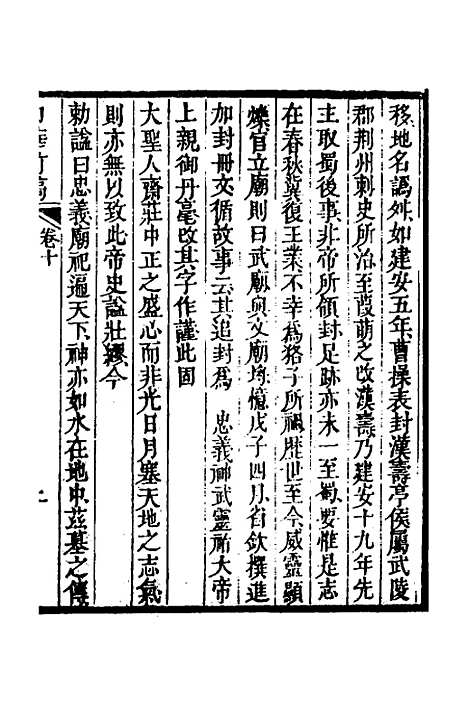 移地名譌舛如建安五年曹操表封漢壽亭侯屬武陵
郡荆州刺史所治至葭萌之改漢壽乃建安十九年先
主取蜀後事非帝所領封足跡亦未一至蜀要惟是志
在春秋冀復王業不幸爲狢子所禍歷世至今威靈顯
爍官立廟則曰武廟與文廟埓憶戊子四月省欽撰進
加封冊文循故事云其追封爲 忠義神武靈祐大帝
上親御丹毫改其字作謹此固
大聖人齋莊中正之盛心而非光日月塞天地之志氣
則亦無以致此帝史諡壯繆今
勅諡曰忠義廟祀遍天下神亦如水在地中茲墓之傳
卷十